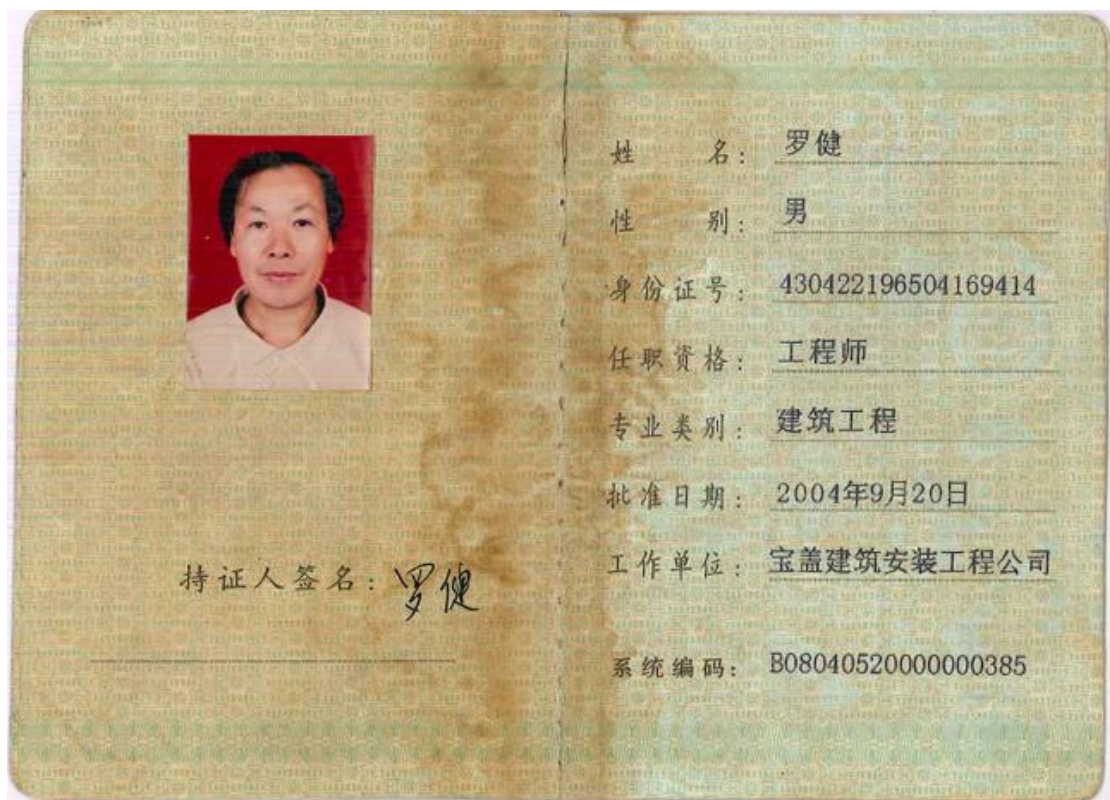 持证人签名：罗健
姓名：罗健
性别：男
身份证号：430422196504169414
任职资格：工程师
专业类别：建筑工程
批准日期：2004年9月20日
工作单位：宝盖建筑安装工程公司
系统编码：B08040520000000385